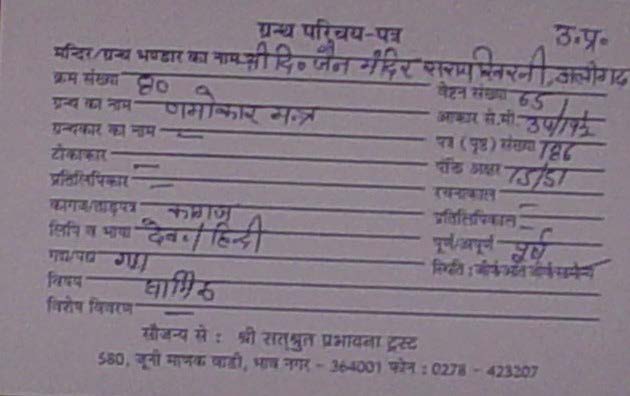 ग्रन्थ परिचय-पत्र
उ.प्र.
मन्दिर/ग्रन्थ भण्डार का नाम श्री दि० जैन मंदिर सराय खिरनी, अलीगढ़
क्रम संख्या ४०
वेष्टन संख्या 65
ग्रन्थ का नाम णमोकार मन्त्र
आकार से.मी.
ग्रन्थकार का नाम —
पत्र (पृष्ठ) संख्या
टीकाकार —
पंक्ति अक्षर 15/51
प्रतिलिपिकार —
रचनाकाल —
कागज/ताड़पत्र कागज
प्रतिलिपिकाल —
लिपि व भाषा देव./हिन्दी
पूर्ण/अपूर्ण पूर्ण
गद्य/पद्य गद्य
स्थिति :
विषय धार्मिक
विशेष विवरण —
सौजन्य से : श्री सत्श्रुत प्रभावना ट्रस्ट
580, जूनी माणक वाडी, भाव नगर - 364001 फोन : 0278 - 423207